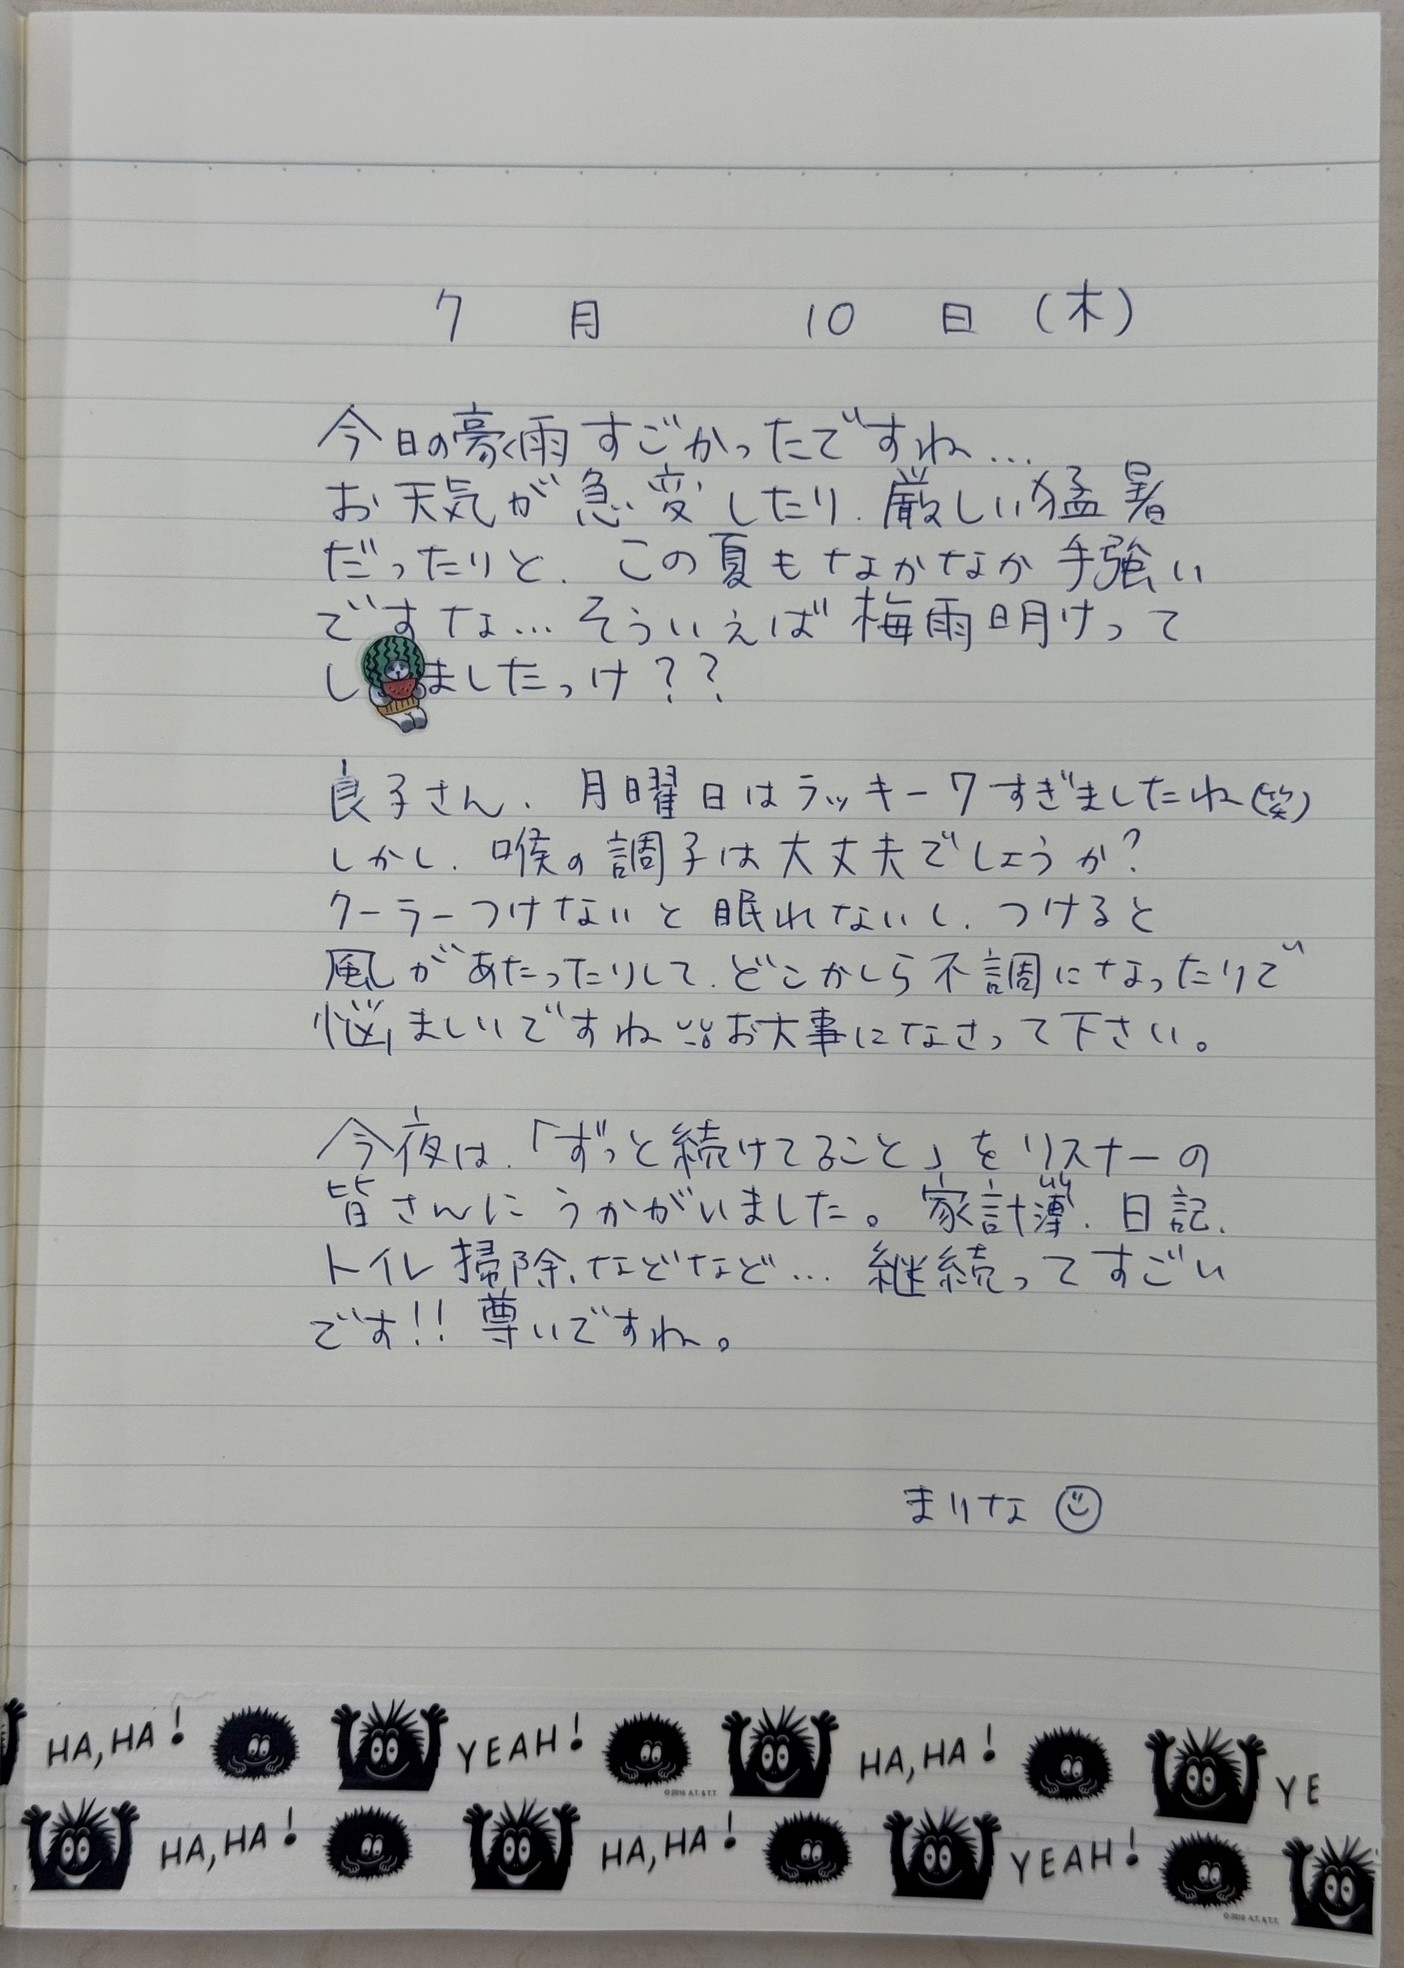 7月 10日(木)
今日の豪雨すごかったですね...
お天気が急変したり、厳しい猛暑
だったりと、この夏もなかなか手強い
ですな...そういえば梅雨明けって
しましたっけ??
良子さん、月曜日はラッキー7すぎましたね(笑)
しかし、喉の調子は大丈夫でしょうか?
クーラーつけないと眠れないし、つけると
風があたったりして、どこかしら不調になったりで
悩ましいですね お大事になさって下さい。
今夜は、「ずっと続けてること」をリスナーの
皆さんにうかがいました。家計簿、日記、
トイレ掃除、などなど...継続ってすごい
です!!尊いですね。
まりな
HA, HA! YEAH! HA, HA! YE
HA, HA! HA, HA! YEAH!